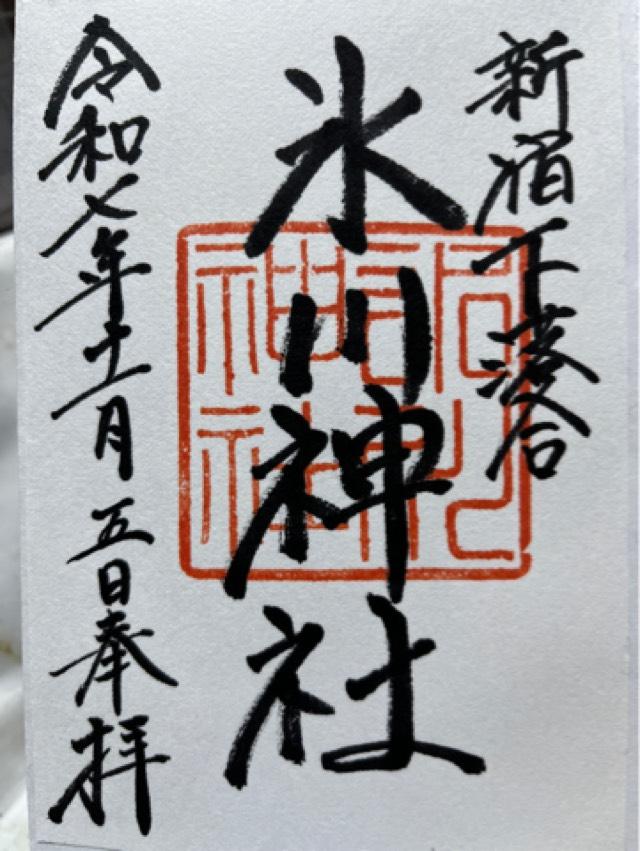 新宿下落合
氷川神社
令和七年十一月五日奉拝
神社